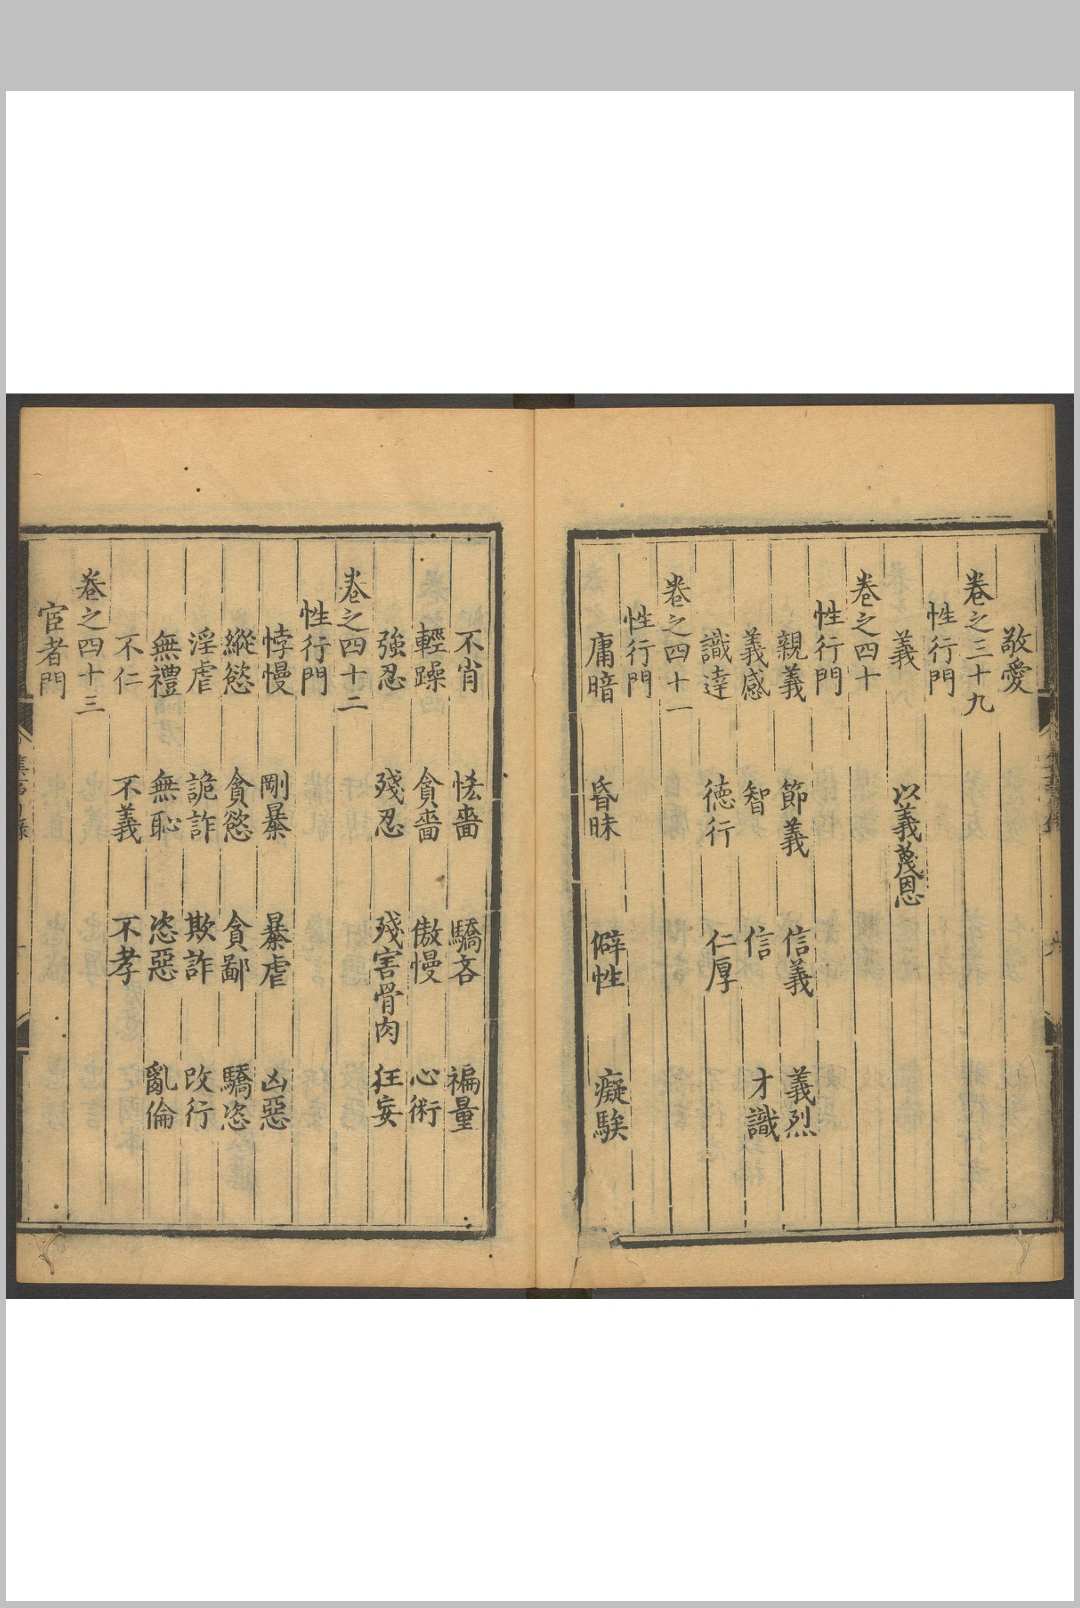 敬愛
卷之三十九
性行門
義 以義蔑恩
卷之四十
性行門
親義 節義 信義 義烈
義感 智 信 才識
識達 德行 仁厚
卷之四十一
性行門
庸暗 昏昧 僻性 癡騃
不肖 恡嗇 驕吝 褊量
輕躁 貪嗇 傲慢 心術
強忍 殘忍 殘害骨肉 狂妄
卷之四十二
性行門
悖慢 剛暴 暴虐 凶惡
縱慾 貪慾 貪鄙 驕恣
淫虐 詭詐 欺詐 改行
無禮 無恥 恣惡 亂倫
不仁 不義 不孝
卷之四十三
宦者門